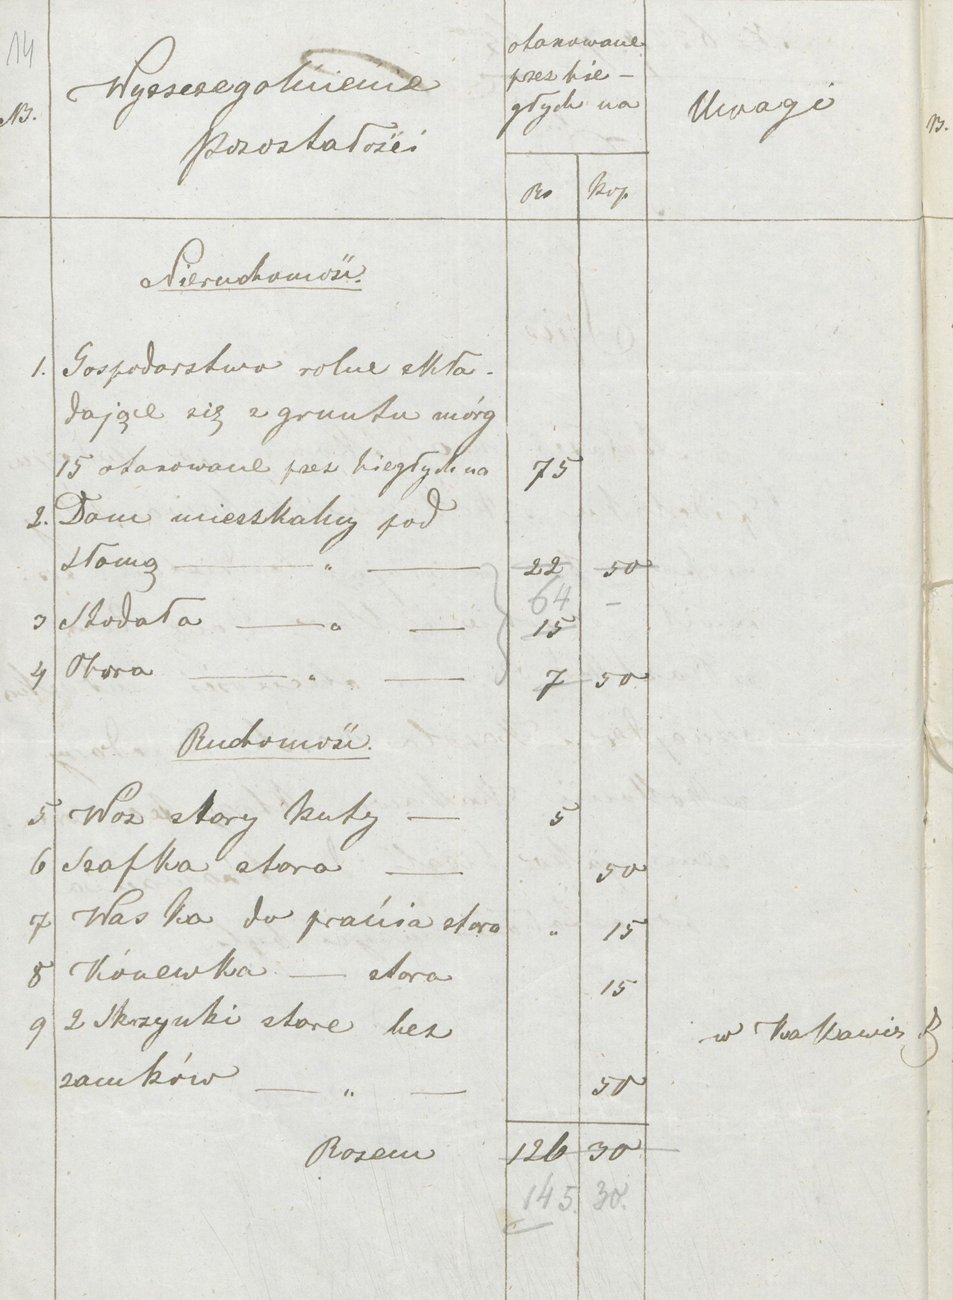 14
N3.
Wyszczegolnienie
pozostałości
otaxowane
przez bie-
głych na
Uwagi
Rs
Kop
Nieruchomości.
1. Gospodarstwo rolne skła-
dające się z gruntu mórg
15 otaxowane przez biegłych na 75
2. Dom mieszkalny pod
słomą — " — 22 50
64 -
3 Stodoła — " — 15
4 Obora — " — 7 50
Ruchomości.
5 Wóz stary kuty — 5
6 Szafka stara — 50
7 Waska do prańia stara " 15
8 Kónewka — stara 15
9 2 Skrzynki stare bez
zamków — " — 50
Razem 126 30
145. 30.